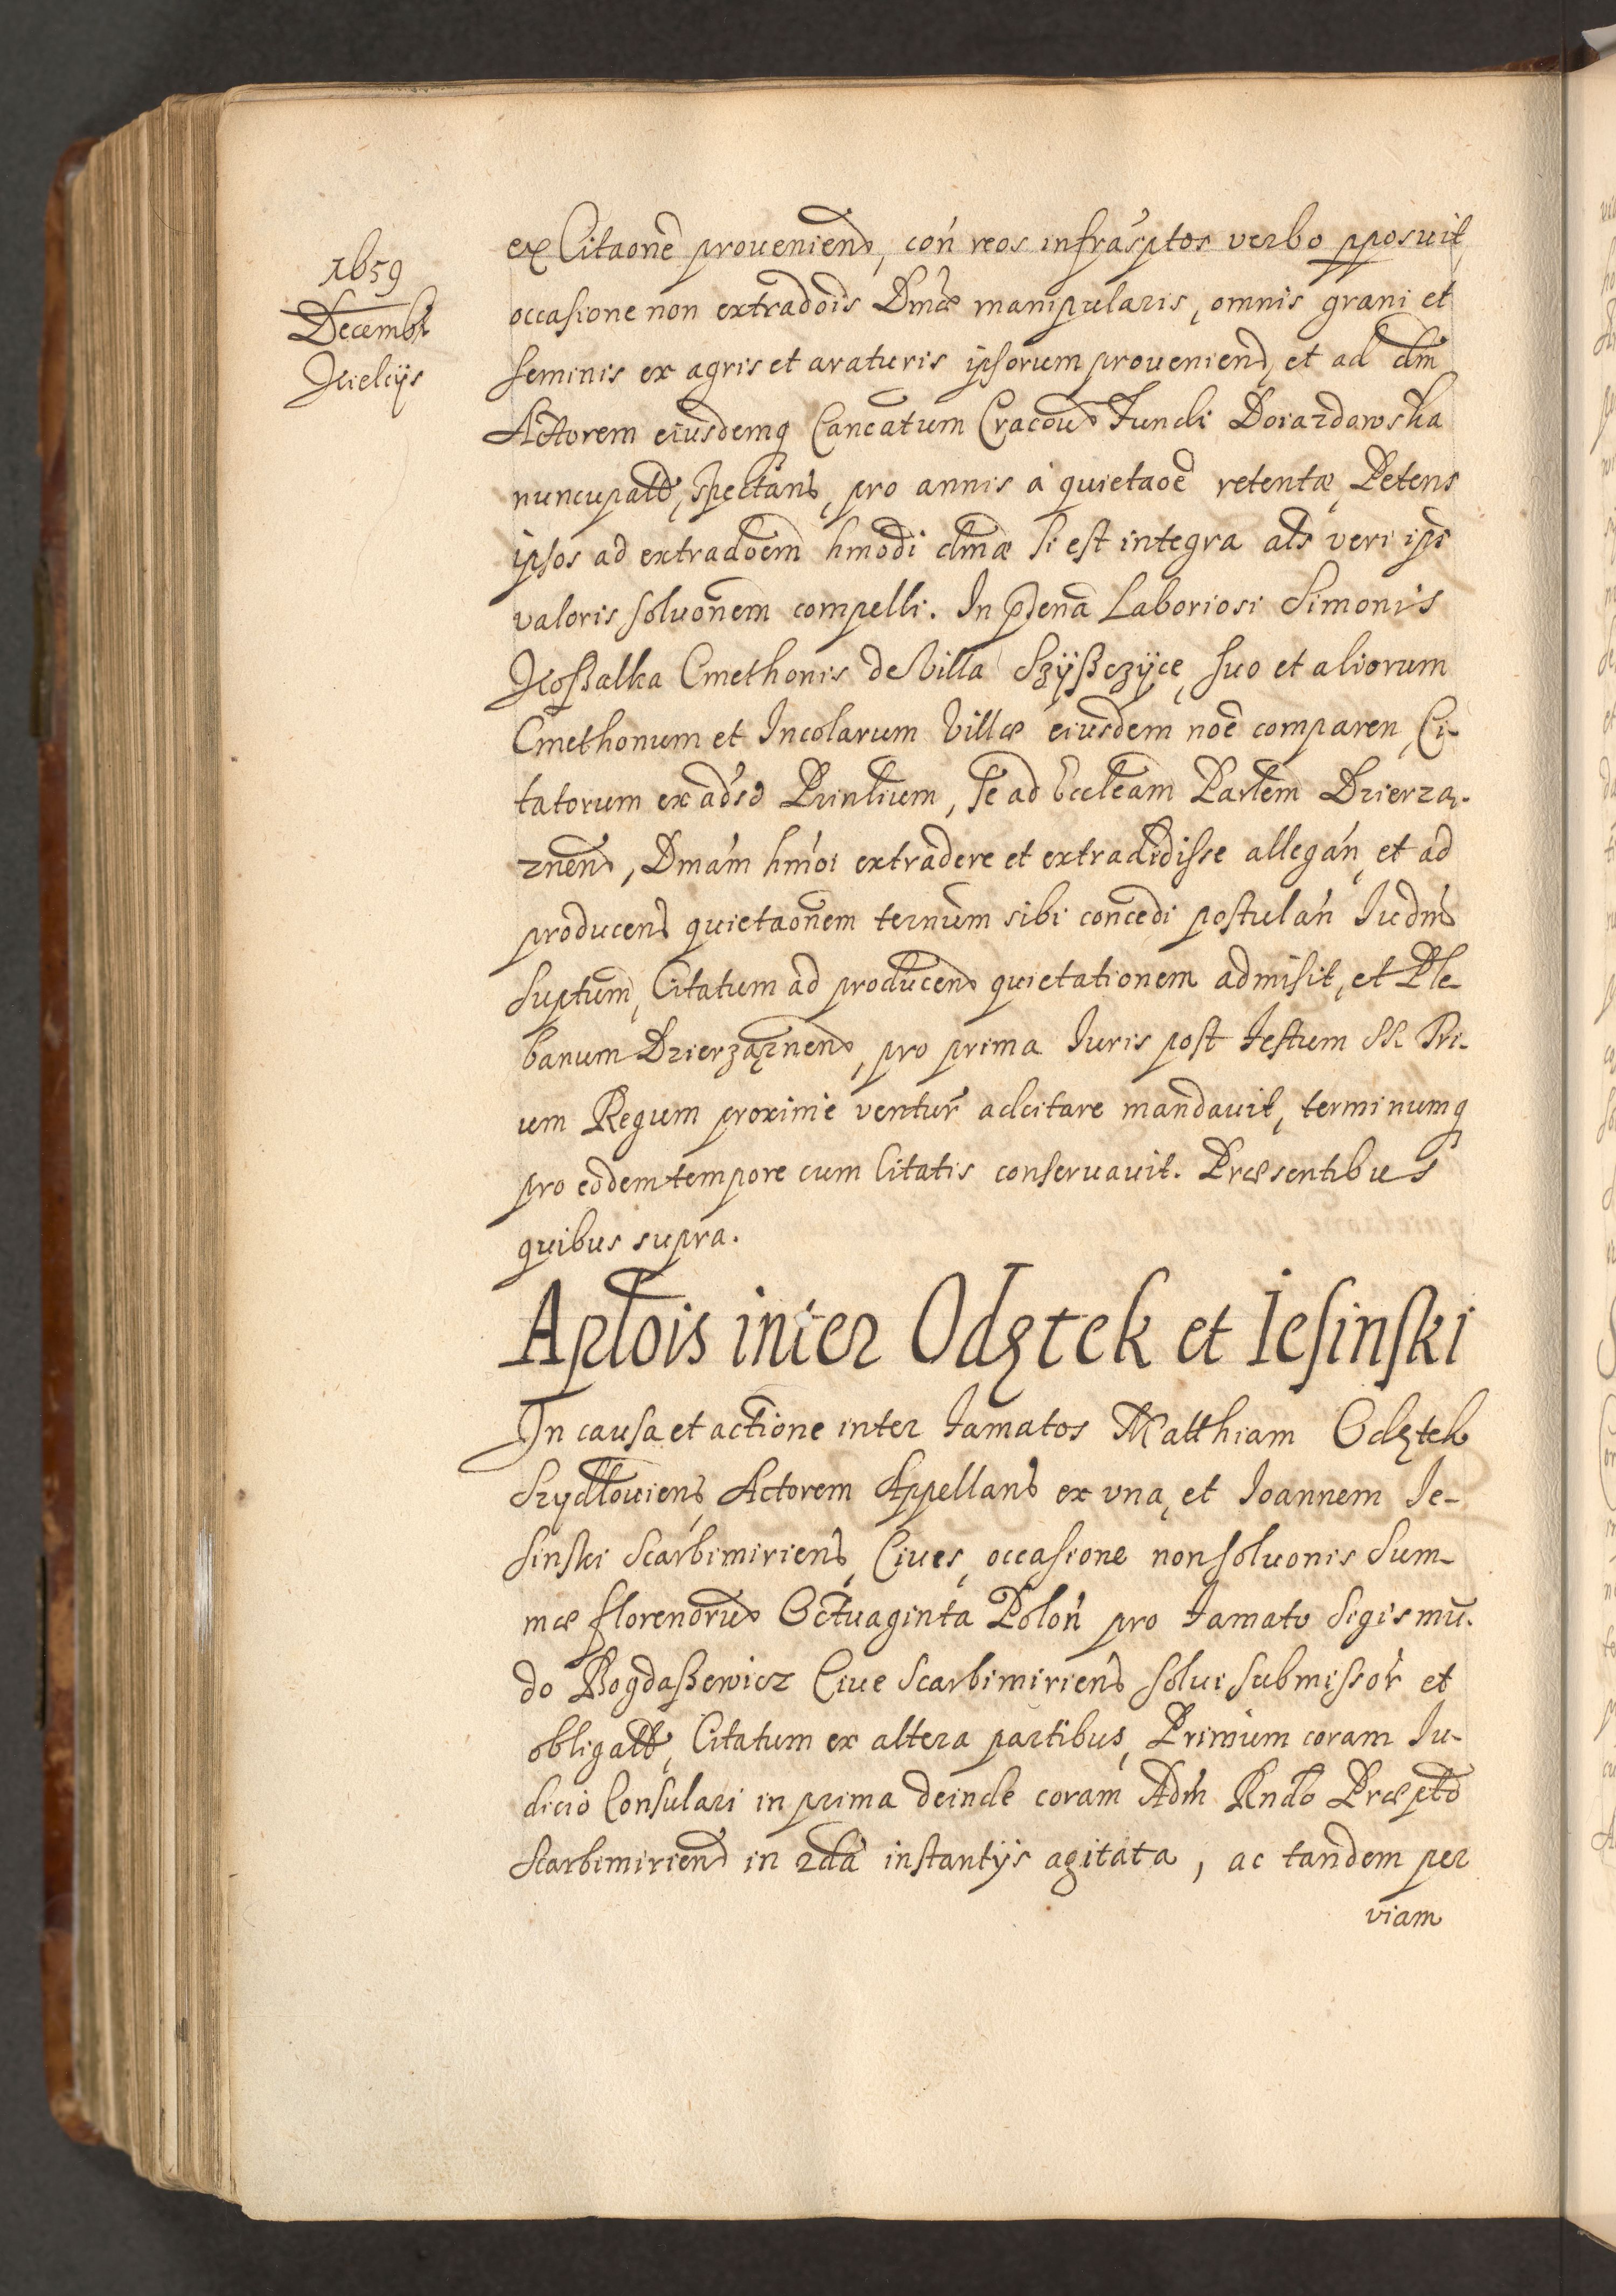 1659
Decembr
Kielciis
ex Citaone proueniend, con reos infrasptos verbo pposuit
occasione non extradois Dmæ manipularis, omnis grani et
seminis ex agris et araturis ipsorum proueniend, et ad dm
Actorem eiusdemq Cancatum Cracou Fundi Doiazdowska
nuncupatt, spectans, pro annis a quietaoe retentæ, Petens
ipsos ad extradoem hmodi dmæ si est integra als veri ipi
valoris soluonem compelli. In pdena Laboriosi Simonis
Koßalka Cmethonis de Villa Szyßczyce, suo et aliorum
Cmethonum et Incolarum Villæ eiusdem noe comparen, Ci-
tatorum ex adso Prinlium, Se ad Eccleam Parlem Dzierza-
znen, Dmam hmoi extradere et extradidisse allegan, et ad
producend quietaonem ternum sibi concedi postulan Iudm
suptum, Citatum ad producend quietationem admisit, et Ple-
banum Dzierząznen, pro prima Iuris post Festum SS. Tri-
um Regum proxime ventur adcitare mandauit, terminumq
pro eodem tempore cum Citatis conseruauit. Præsentibus
quibus supra.
Aplois inter Odętek et Iesinski
In causa et actione inter Famatos Matthiam Odętek
Szydlouiens, Actorem Appellans ex vna, et Ioannem Ie-
sinski Scarbimiriens, Ciues, occasione non soluonis Sum-
mæ florenoru Octuaginta Polon pro Famato Sigismu-
do Bogdaßewicz Ciue Scarbimiriens solui submissor et
obligatt, Citatum ex altera partibus, Primum coram Iu-
dicio Consulari in prima deinde coram Adm Rndo Præpto
Scarbimirien in 2da instantijs agitata, ac tandem per
viam